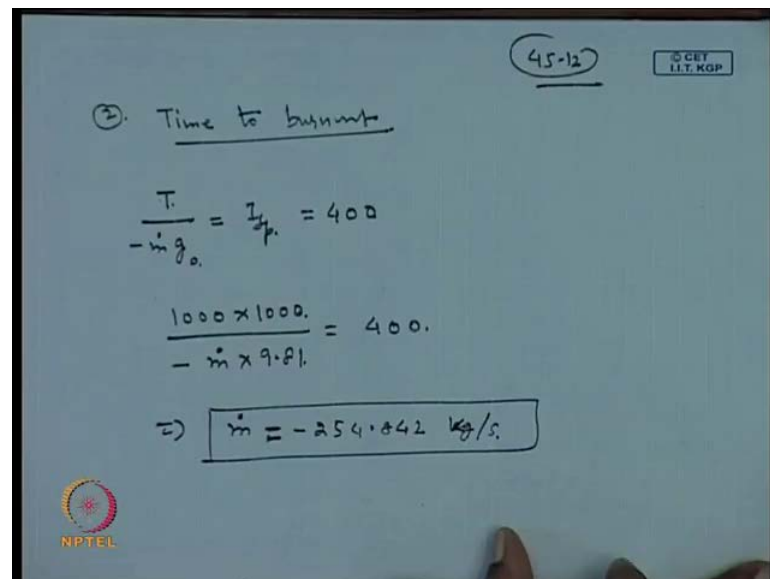 45-12
© CET
I.I.T. KGP
②. Time to burnout
T. / -ṁ g₀. = Isp. = 400
1000 × 1000. / - ṁ × 9.81. = 400.
=) ṁ = -254.842 kg/s.
NPTEL